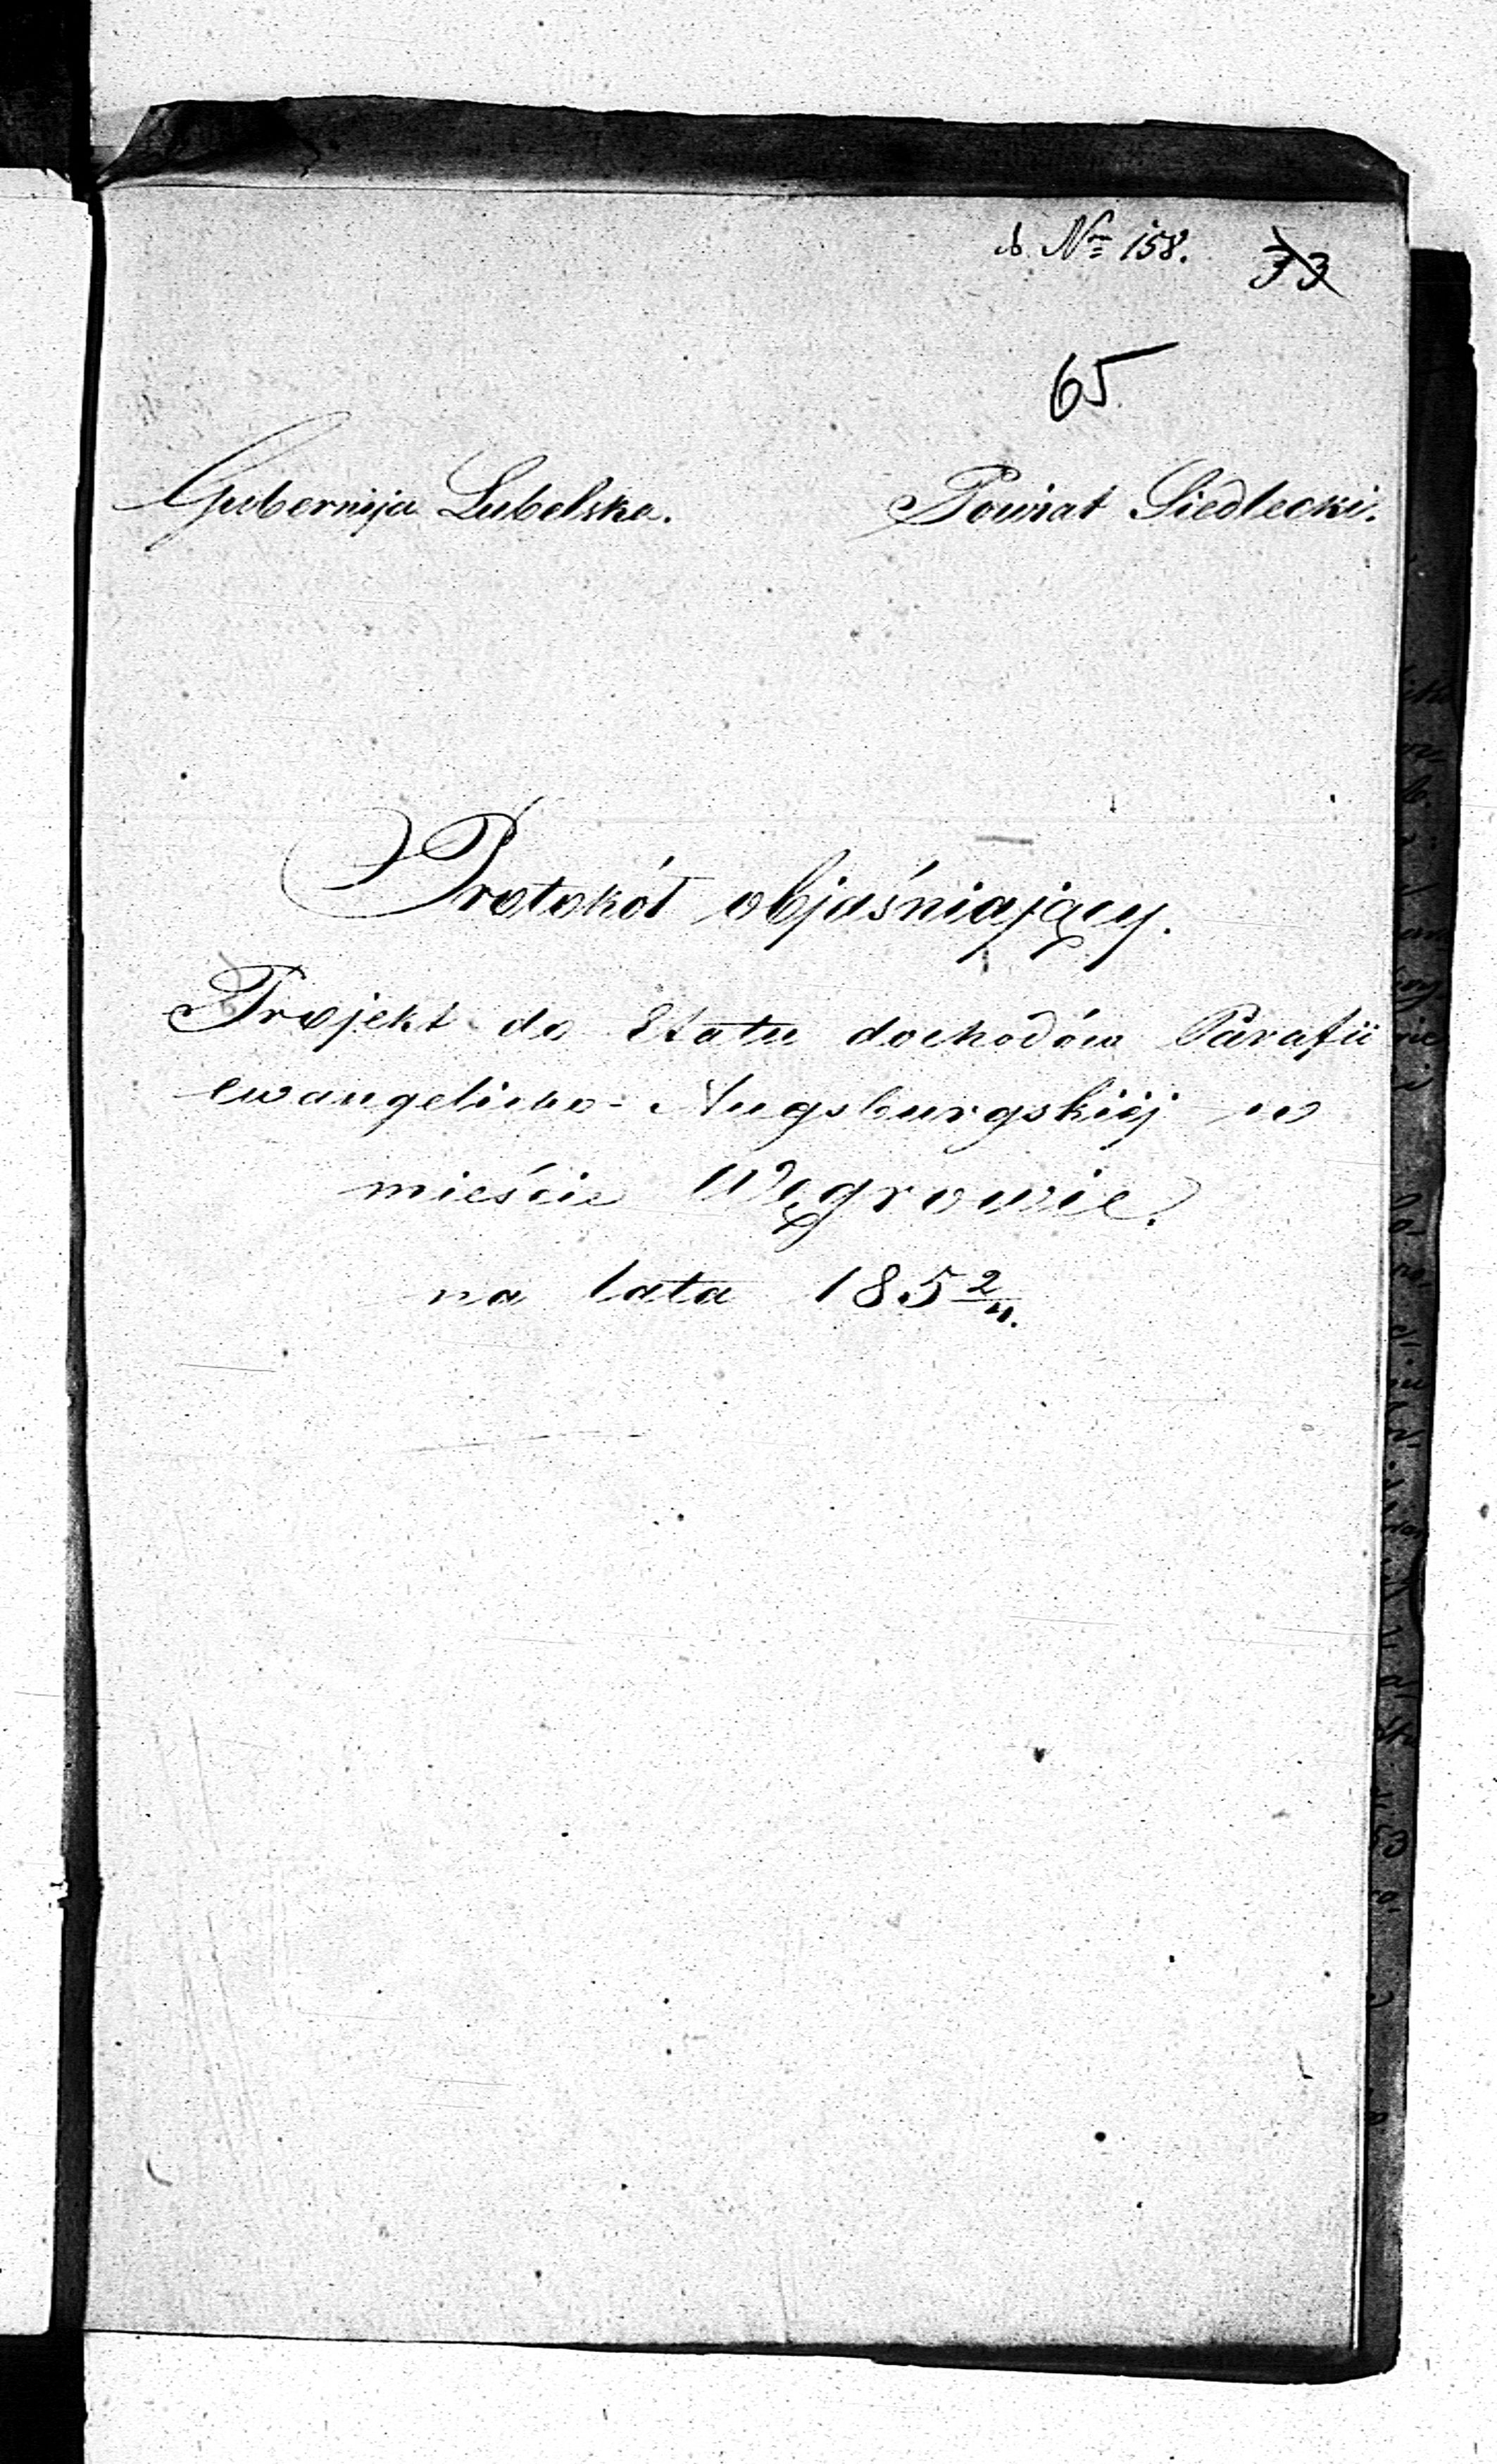 d. Nr 158. 33
65
Gubernija Lubelska. Powiat Siedlecki.
Protokół objaśniający.
Projekt do Etatu dochodów Parafii
ewangelicko-Augsburgskiéj w
mieście Węgrowie.
na lata 185 2/4.